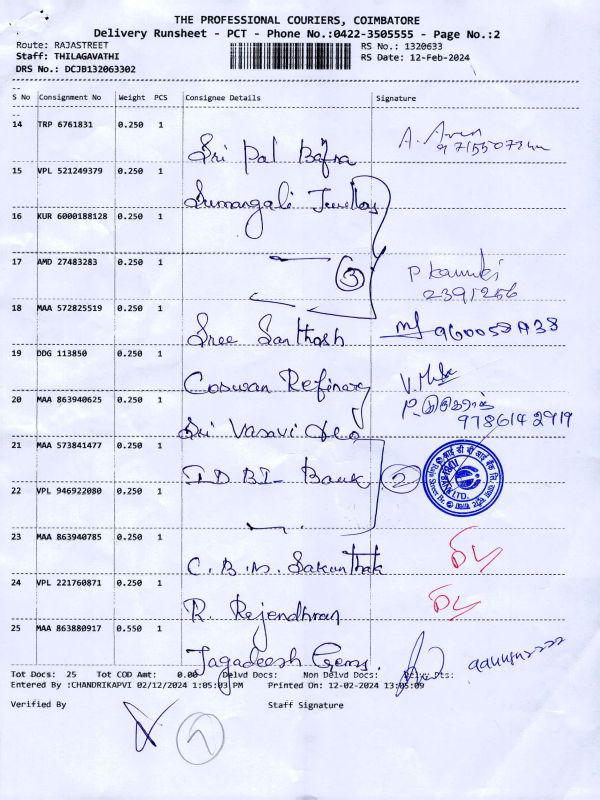 THE PROFESSIONAL COURIERS, COIMBATORE
Delivery Runsheet - PCT - Phone No.:0422-3505555 - Page No.:2
Route: RAJASTREET
RS No.: 1320633
Staff: THILAGAVATHI
RS Date: 12-Feb-2024
DRS No.: DCJB132063302
S No Consignment No Weight PCS Consignee Details Signature
14 TRP 6761831 0.250 1 Sri Pal Bafna A. Arun
15 VPL 521249379 0.250 1 Sumangali Jewellers
16 KUR 6000188128 0.250 1
17 AMD 27483283 0.250 1 3
2391256
18 MAA 572825519 0.250 1 Sree Santhosh
19 DDG 113850 0.250 1 Coswan Refinary
20 MAA 863940625 0.250 1 Sri Vasavi
9786142919
21 MAA 573841477 0.250 1 I.D.B.I- Bank 2
22 VPL 946922080 0.250 1
23 MAA 863940785 0.250 1 C.B.M.
24 VPL 221760871 0.250 1 R. Rejendhran
25 MAA 863880917 0.550 1 Jagadeesh Gems.
Tot Docs: 25 Tot COD Amt: 0.00 Delvd Docs: Non Delvd Docs:
Entered By :CHANDRIKAPVI 02/12/2024 1:05:03 PM Printed On: 12-02-2024 13:05:09
Verified By Staff Signature